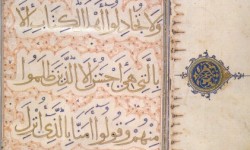 ولا تجادلوا أهل الكتاب إلا
بالتي هي أحسن إلا الذين ظلموا
منهم وقولوا آمنا بالذي أنزل